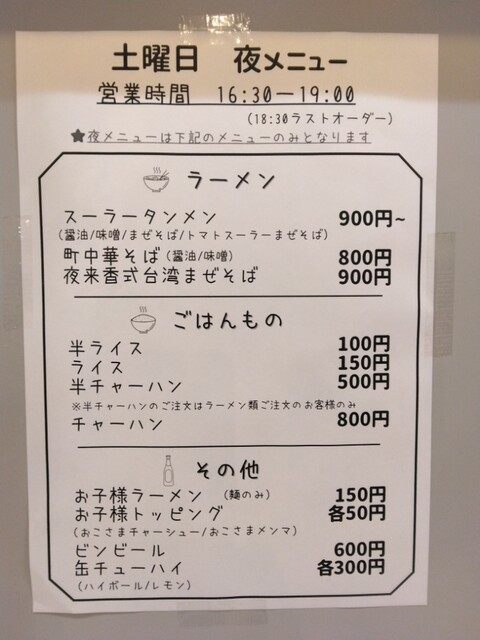 土曜日 夜メニュー
営業時間 16:30ー19:00
(18:30ラストオーダー)
★夜メニューは下記のメニューのみとなります
ラーメン
スーラータンメン 900円~
(醤油/味噌/まぜそば/トマトスーラーまぜそば)
町中華そば(醤油/味噌) 800円
夜来香式台湾まぜそば 900円
ごはんもの
半ライス 100円
ライス 150円
半チャーハン 500円
※半チャーハンのご注文はラーメン類ご注文のお客様のみ
チャーハン 800円
その他
お子様ラーメン (麺のみ) 150円
お子様トッピング 各50円
(おこさまチャーシュー/おこさまメンマ)
ビンビール 600円
缶チューハイ 各300円
(ハイボール/レモン)